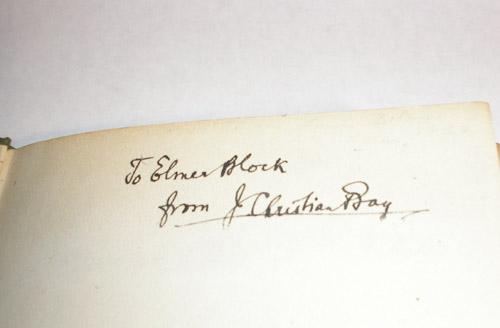 To Elmer Block
from J. Christian Bay